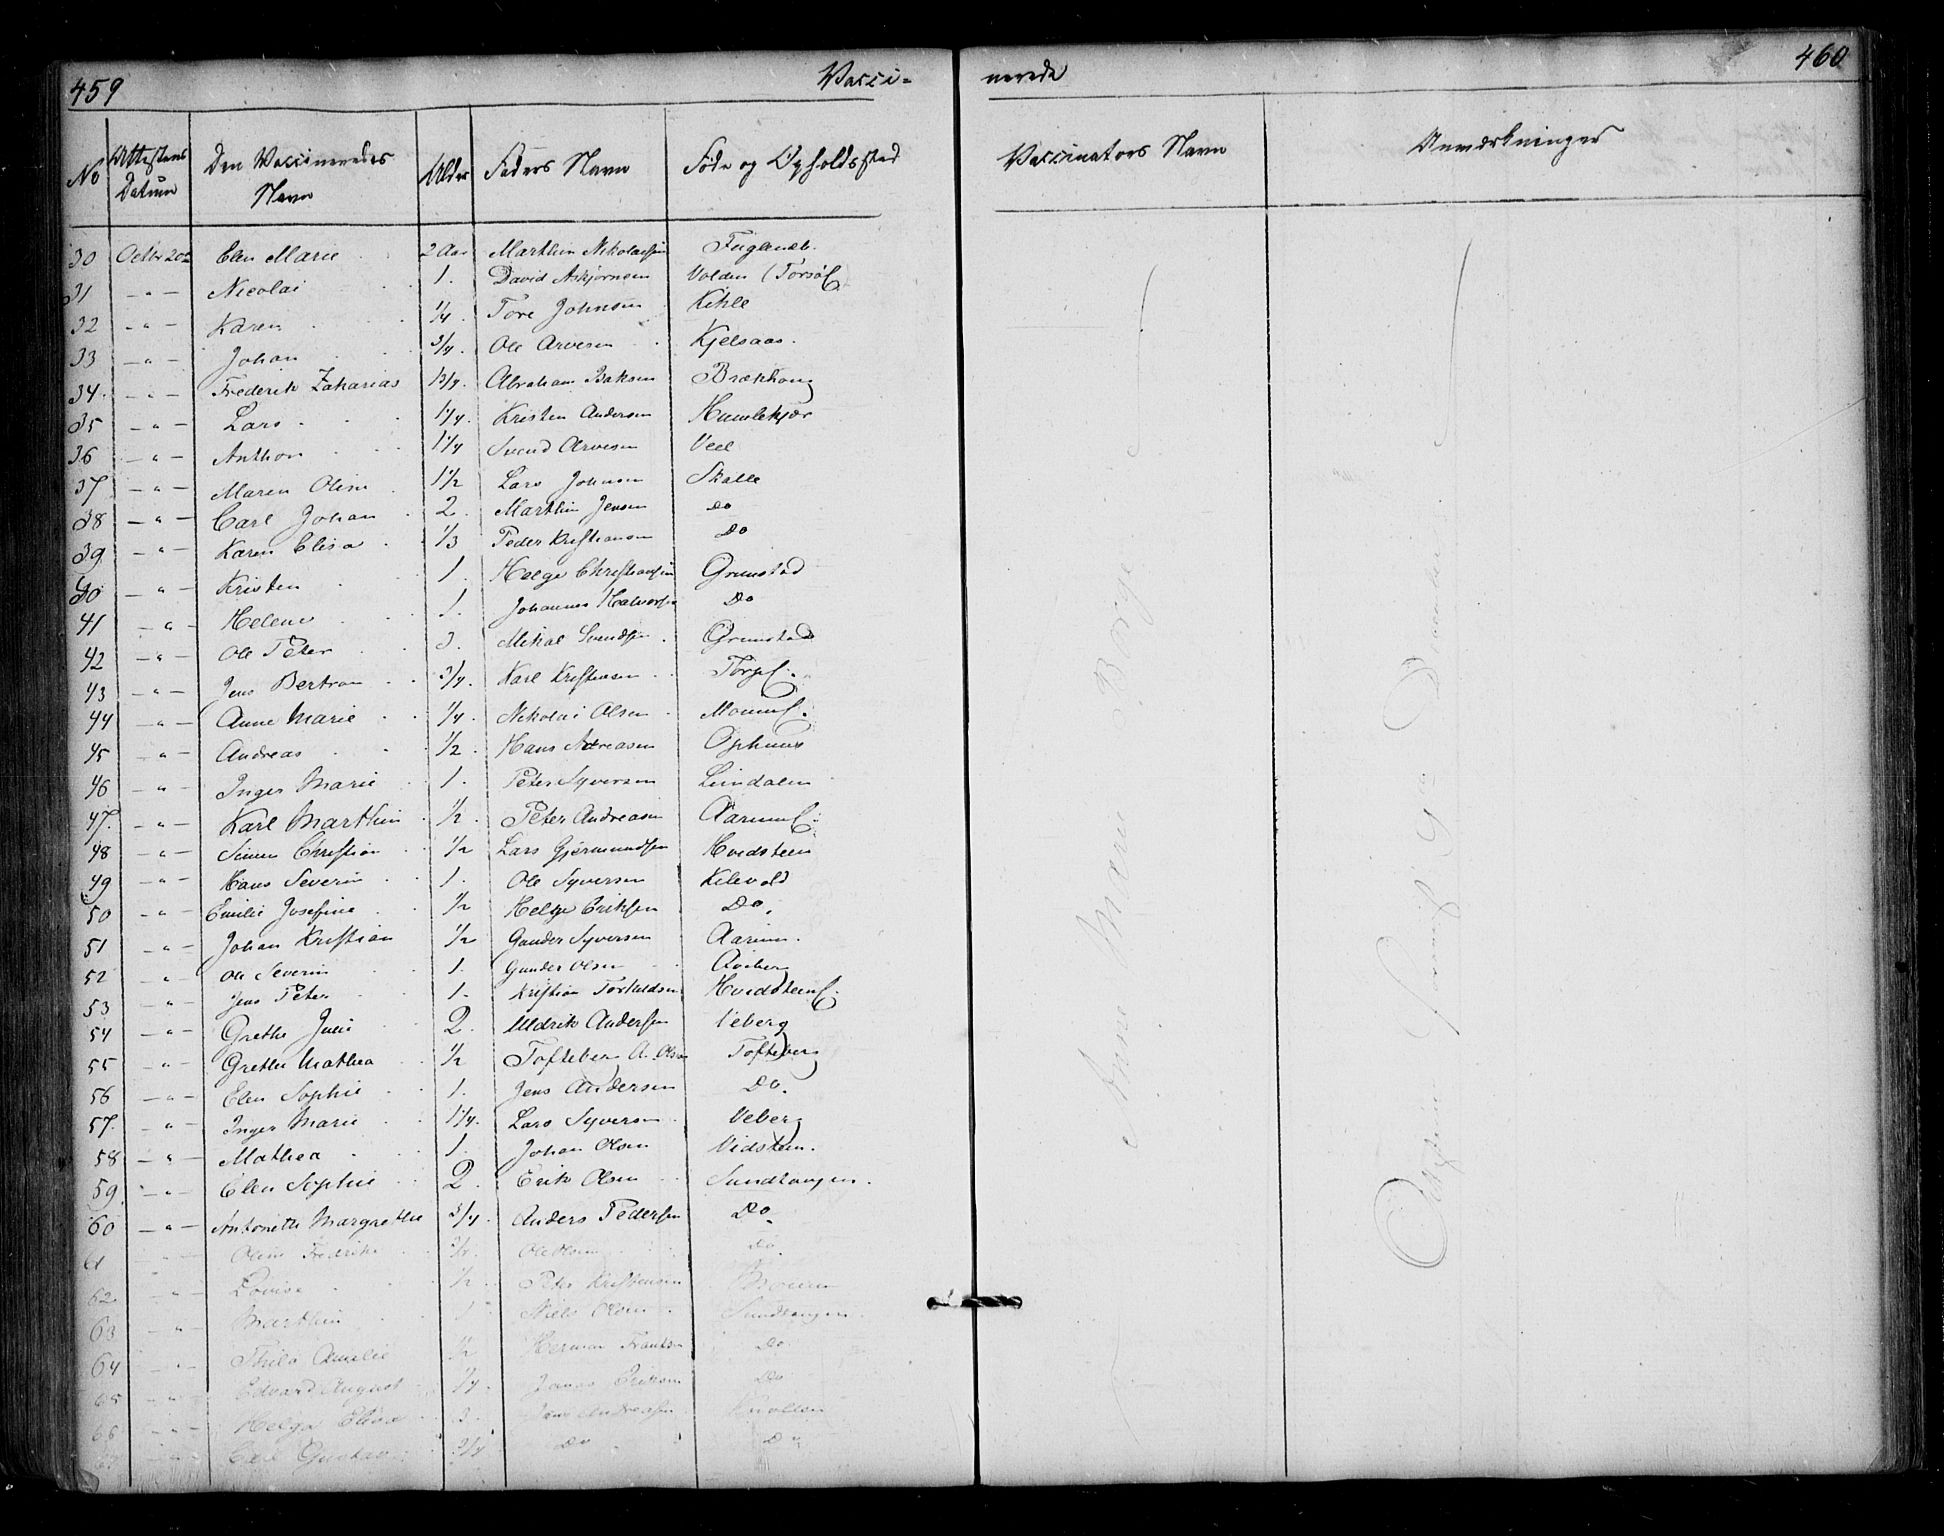 459
Vacci-
nerede
460
No
Attestens Datum
Den Vaccineredes Navn
Alder
Faders Navn
Føde og Opholdssted
Vaccinators Navn
Anmærkninger
30 Octbr 20de Elen Marie 2 Aar Marthin Nikolaisen Fuglenæb.
31 — " — Nicolai 1. David Asbjørnsen Volden (Torsø
32 — " — Karen 1/4 Tore Johnsen Kihle
33 — " — Johan 3/4. Ole Arvesen Kjelsaas.
34. — " — Frederik Zakarias 1 3/4. Abraham Baksen Brækhoug
35 — " — Lars 1 1/4. Kristen Andersen Humlekjær
36 — " — Anthon 1 1/4 Svend Arvesen Veel
37. — " — Maren Oline 1 1/2 Lars Johnsen Skalle
38 — " — Carl Johan 2. Marthin Jensen Do
39 — " — Karen Elisa 1/3 Peder Kristiansen Do
40 — " — Kristen 1. Helge Christiansen Grimstad
41 — " — Helene 1. Johannes Halvorsen Do
42 — " — Ole Peter 3. Mikal Svendsen Grimstad
43 — " — Jens Bertran 3/4. Karl Kristensen
44 — " — Anne Marie 1/4. Nikolai Olsen
45 — " — Andreas 1/2. Hans Andreasen Ophuus
46 — " — Inger Marie 1. Peter Syversen Lindalen
47. — " — Karl Marthin 1/2. Peter Andreasen
48 — " — Simen Christian 1/2 Lars Gjermundsen Hvidsteen
49 — " — Hans Severin 1. Ole Syversen Kilevold
50 — " — Emilie Josefine 1/2 Helge Eriksen Do.
51 — " — Johan Kristian 1/2 Gunder Syversen Aarum.
52 — " — Ole Severin 1. Gunder Olsen
53 — " — Jens Peter 1. Kristian Torkildsen
54 — " — Grethe Julie 2. Uldrik Andersen Veberg
55 — " — Grethe Mathea 1/2 Tofteberg A. Olsen Tofteberg
56 — " — Elen Sophie 1. Jens Andersen Do.
57. — " — Inger Marie 1 1/4. Lars Syversen Veberg
58 — " — Mathea 1. Johan Olsen Vidsteen.
59. — " — Elen Sophie 2. Erik Olsen Sundtangen.
60 — " — Antonette Margrethe 3/4. Anders Pedersen Do.
61 — " — Oline Fredrikke Ole Olsen Do.
62. — " — Lovise 1/2 Peter Kristensen
63 — " — Marthin 1 Niels Olsen Sundtangen.
64 — " — Thila Amalie 1/2 Herman Frantsen Do.
65 — " — Edvard August 1/4. Jonas Eriksen Do
66 — " — Helga Elise 3. Jens Andreasen Knollen
67 — " — Carl Gustav 3/4 Do Do,
Anne Marie Borge